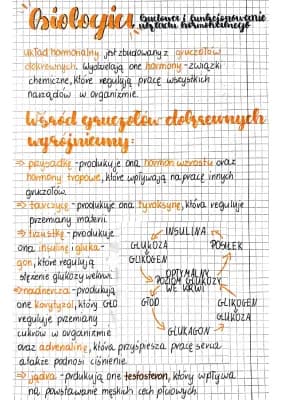 Biologia Budowa i funkcjonowanie
układu hormonalnego
układ hormonalny jest zbudowany z gruczołów
dokrewnych. Wydzielają one hormony - związki
chemiczne, które regulują pracę wszystkich
narządów w organizmie.
Wśród gruczołów dokrewnych
wyróżniamy:
⇒ przysadkę - produkuje ona hormon wzrostu oraz
hormony tropowe, które wpływają na pracę innych
gruczołów.
⇒ tarczycę - produkuje ona tyroksynę, która reguluje
przemianę materii.
⇒ trzustkę - produkuje
ona insulinę i gluka-
gon, które regulują
stężenie glukozy we krwi.
⇒ nadnercza - produkują
one kortyzol, który
reguluje przemiany
cukrów w organizmie
oraz adrenalinę, która przyśpiesza pracę serca
a także podnosi ciśnienie.
⇒ jądra - prdukują one testosteron, który wpływa
na powstawanie męskich cech płciowych.
INSULINA
GLUKOZA
↓
GLIKOGEN
POSIŁEK
OPTYMALNY
POZIOM GLUKOZY
WE KRWI
GŁÓD
GLIKOGEN
↓
GLUKOZA
GLUKAGON